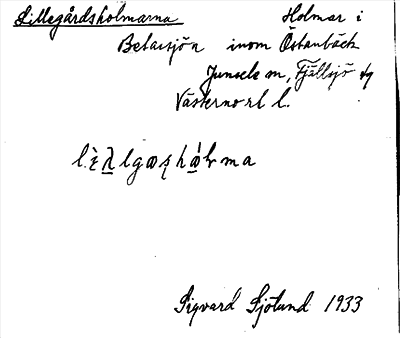 Lillegårdsholmarna Holmar i
Betarsjön inom Östanbäck
Junsele sn, Fjällsjö tg
Västernorrl l.
Sigvard Sjölund 1933